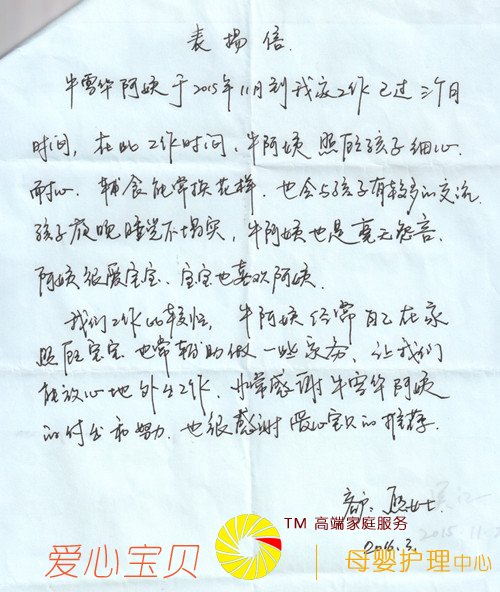 表扬信.
牛雪华阿姨于2015年11月到我家工作已过三个月
时间，在此工作时间、牛阿姨照顾孩子细心.
耐心. 辅食能常换花样. 也会与孩子有较多的交流.
孩子夜晚睡觉不塌实，牛阿姨也是毫无怨言.
阿姨很爱宝宝、宝宝也喜欢阿姨.
我们工作比较忙. 牛阿姨经常自己在家
照顾宝宝 也常帮助做一些家务、让我们
能放心地外出工作. 非常感谢牛雪华阿姨
的付出和努力. 也很感谢爱心宝贝的推荐.
女士
2016.3.
2015.11.2
TM 高端家庭服务
爱心宝贝 母婴护理中心